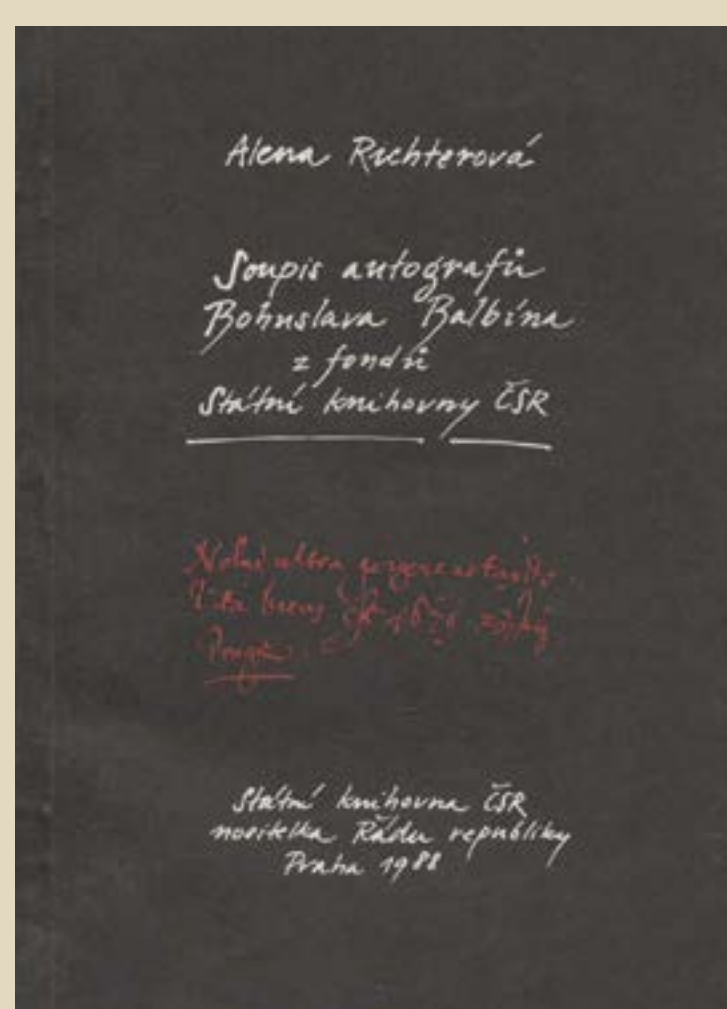 Alena Richterová
Soupis autografů
Bohuslava Balbína
z fondů
Státní knihovny ČSR
Vita brevis
Státní knihovna ČSR
nositelka Řádu republiky
Praha 1988